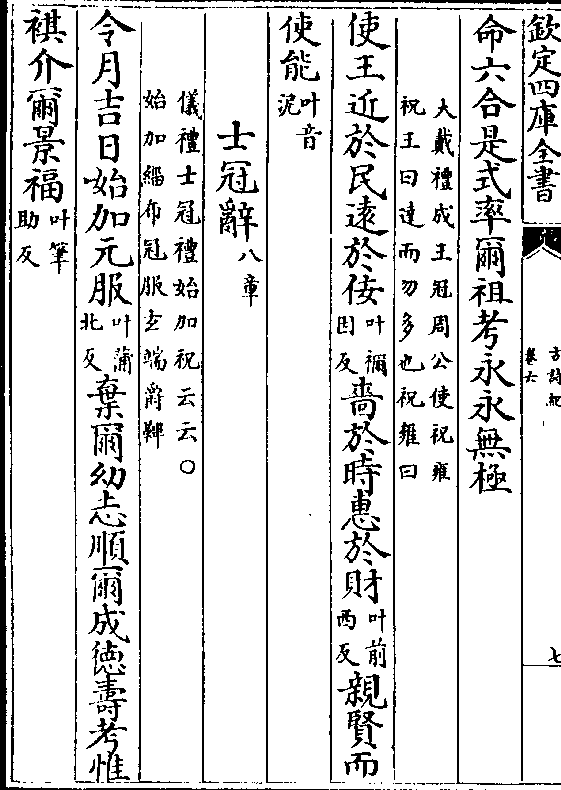 欽定四庫全書
古詩紀
卷六
七
命六合是式率爾祖考永永無極
大戴禮成王冠周公使祝雍
祝王曰達而勿多也祝雍曰
使王近於民遠於佞叶禰因反嗇於時惠於財叶前西反親賢而
使能叶音泥
士冠辭八章
儀禮士冠禮始加祝云云○
始加緇布冠服玄端爵鞸
令月吉日始加元服叶蒲北反棄爾幼志順爾成德壽考惟
祺介爾景福叶筆助反